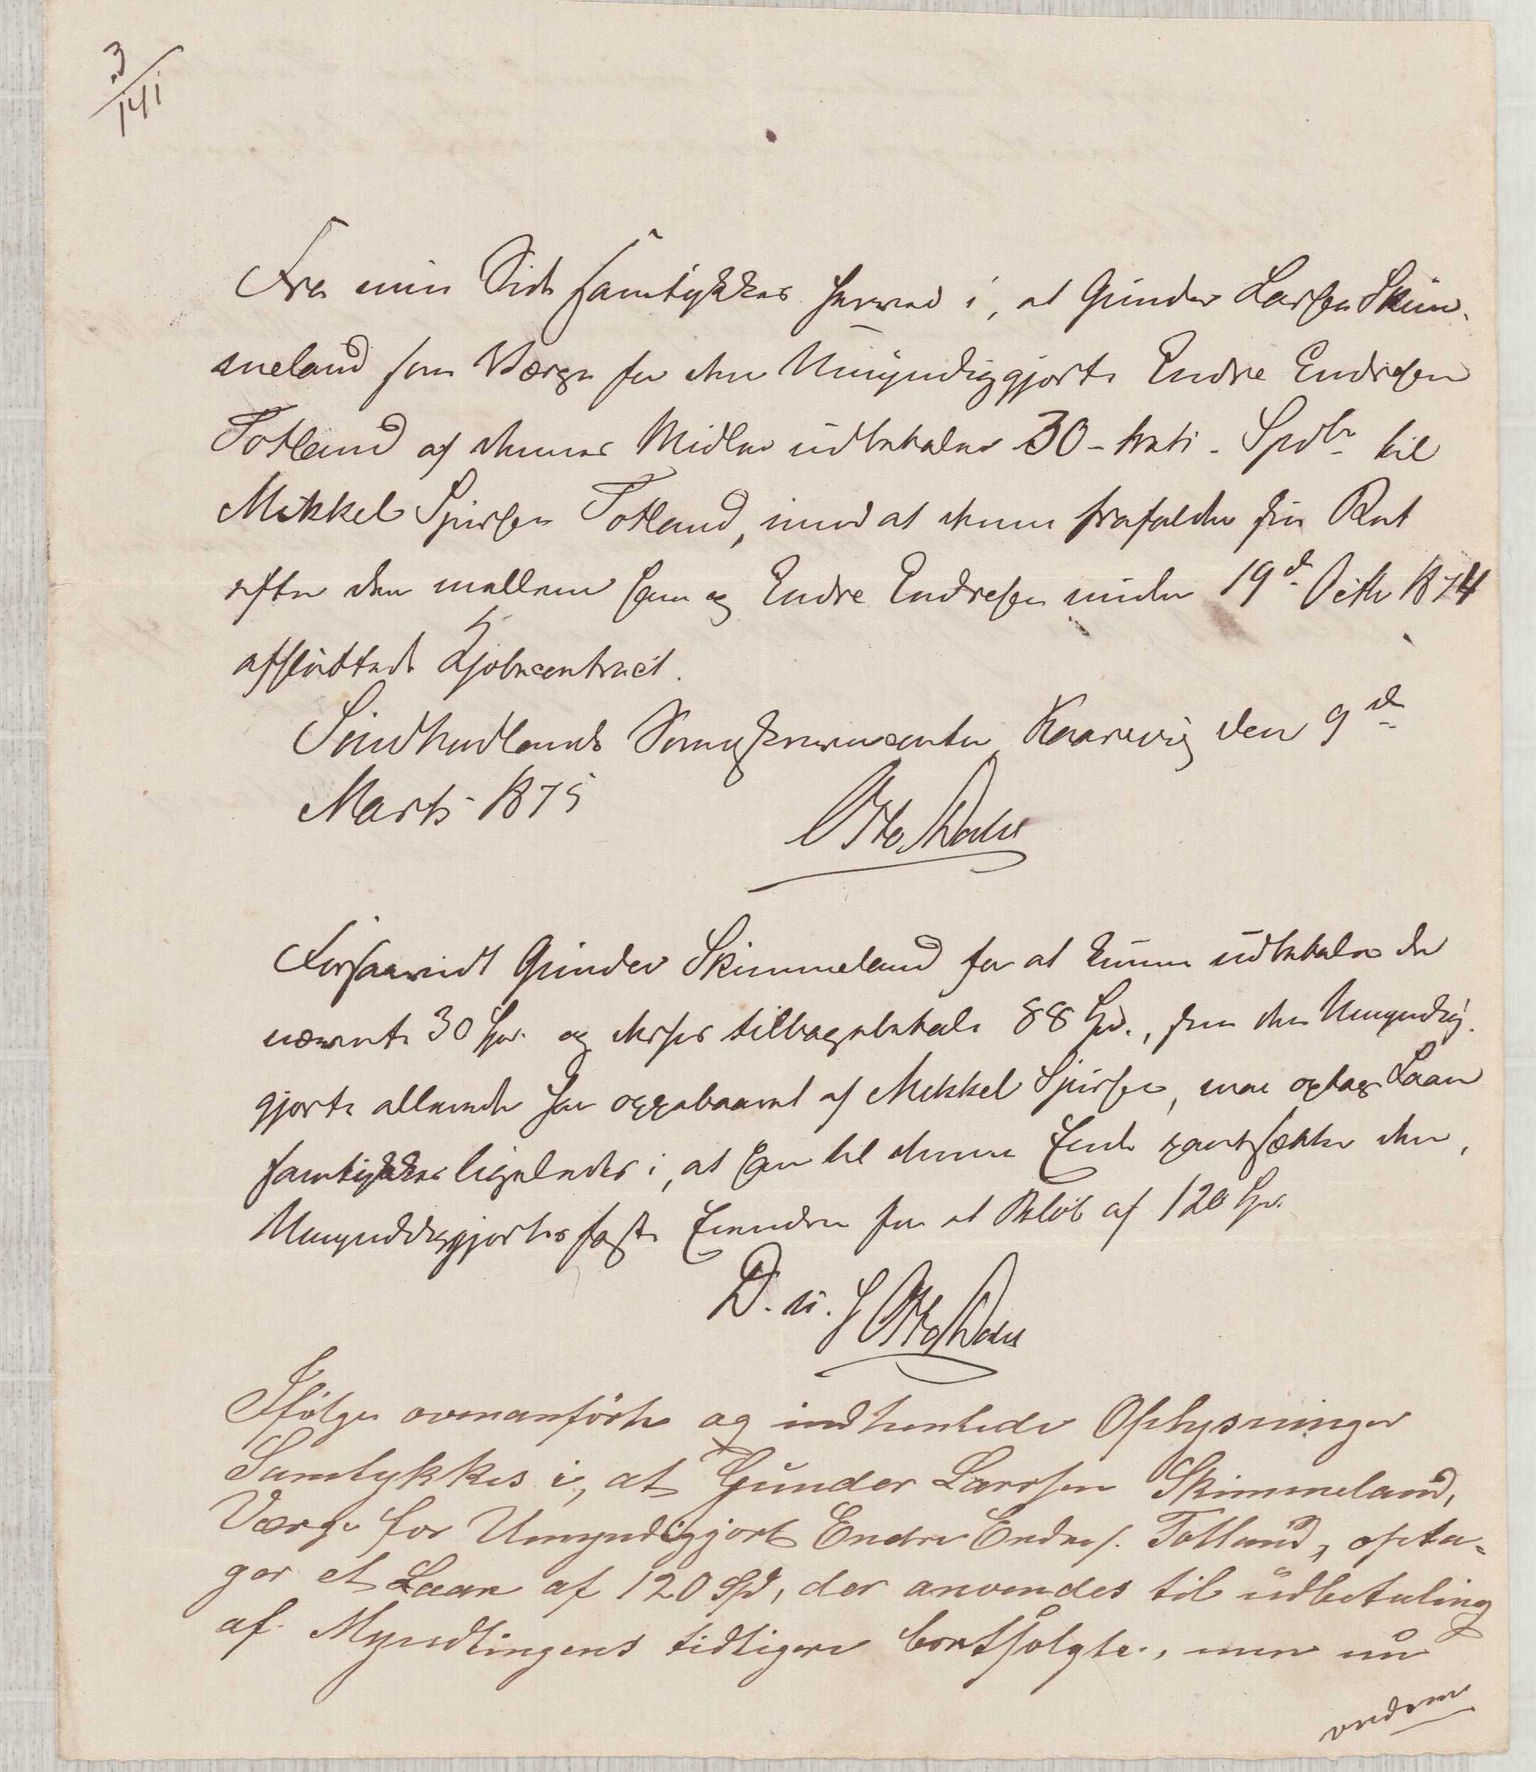 3/141
Fra min Side samtykkes herved i, at Gunder Larsen Skim-
meland som Værge for den Umyndiggjorte Endre Endresen
Totland af dennes Midler udbetaler 30 - treti - Spdlr til
Mikkel Sjursen Totland, imod at denne frafalder sin Ret
efter den mellem ham og Endre Endresen under 19de Octbr 1874
afsluttede Kjøbecontract.
Søndhordlands Sorenskrivercontor, Kaarevig den 9de
Marts 1875
Otto
Forsaavidt Gunder Skimmeland for at kunne udbetale de
nævnte 30 Spd. og derhos tilbagebetale 88 Spd., som den Umyndig-
gjorte allerede har oppebaaret af Mikkel Sjursen, maa optage Laan
samtykkes ligeledes i, at han til denne Ende pantsætter den
Umyndiggjortes faste Eiendom for et Beløb af 120 Spd.
D. u. s
Otto
Ifølge ovenanførte og indhentede Oplysninger
Samtykkes i, at Gunder Larsen Skimmeland,
Værge for Umyndiggjort Endre Endres. Totland, opta-
ger et Laan af 120 Spd, der anvendes til udbetaling
af Myndlingens tidligere bortsolgte, men nu